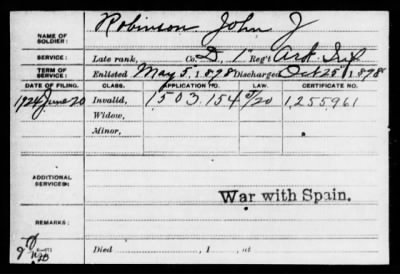 NAME OF SOLDIER: Robinson John J
SERVICE: Late rank, Co. D, 1" Reg't Ark Inf
TERM OF SERVICE: Enlisted May 5, 1898 Discharged Oct 25, 1898
DATE OF FILING. CLASS. APPLICATION NO. CERTIFICATE NO.
1924 June 20 Invalid, 1503.154 5/20 1,255,961
Widow,
Minor,
ADDITIONAL SERVICES:
War with Spain.
REMARKS:
Died , 1 , at